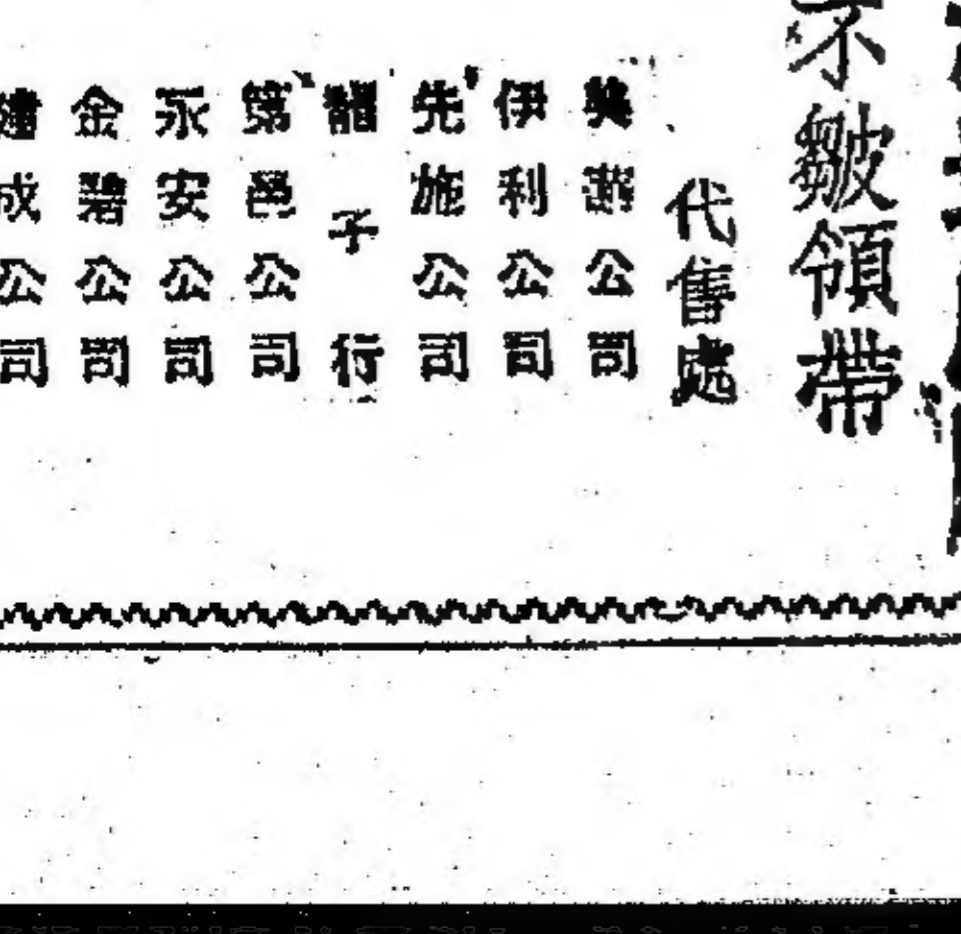 不皺領帶
代售處
美璐公司
伊利公司
先施公司
龍子行
第邑公司
永安公司
金碧公司
建成公司